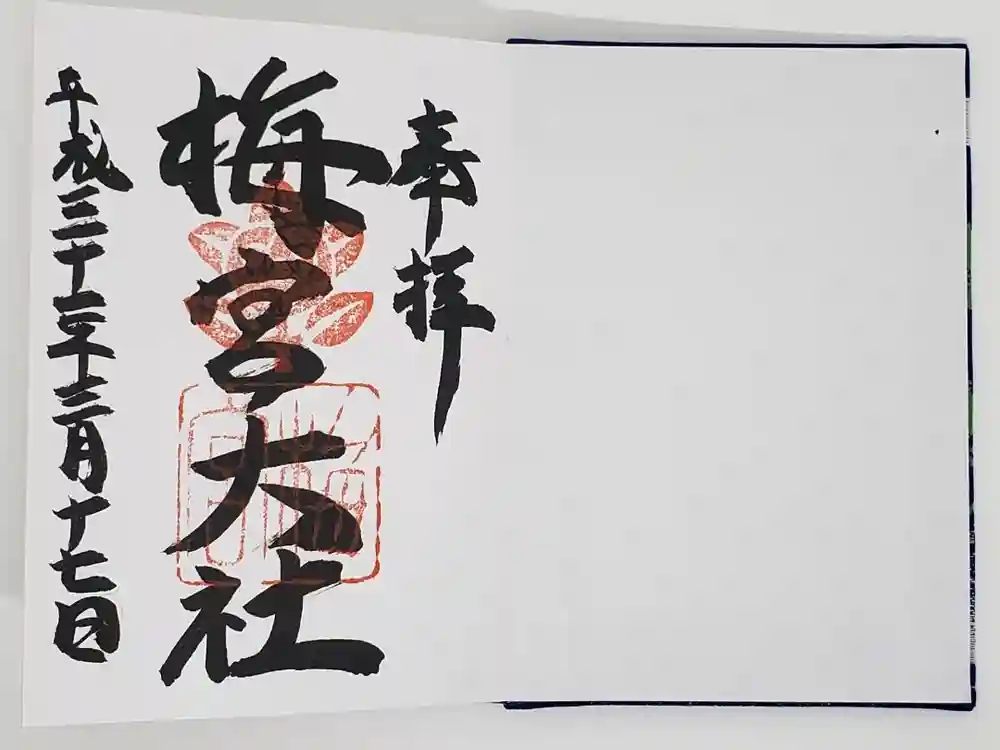 奉拝
梅宮大社
平成三十一年三月十七日